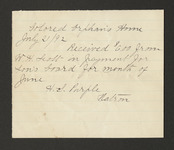 Colored Orphan's Home
July 2/92
Received $6.00 from
W. H. Scott in payment for
Son's board for month of
June
H. S. Purple
Matron